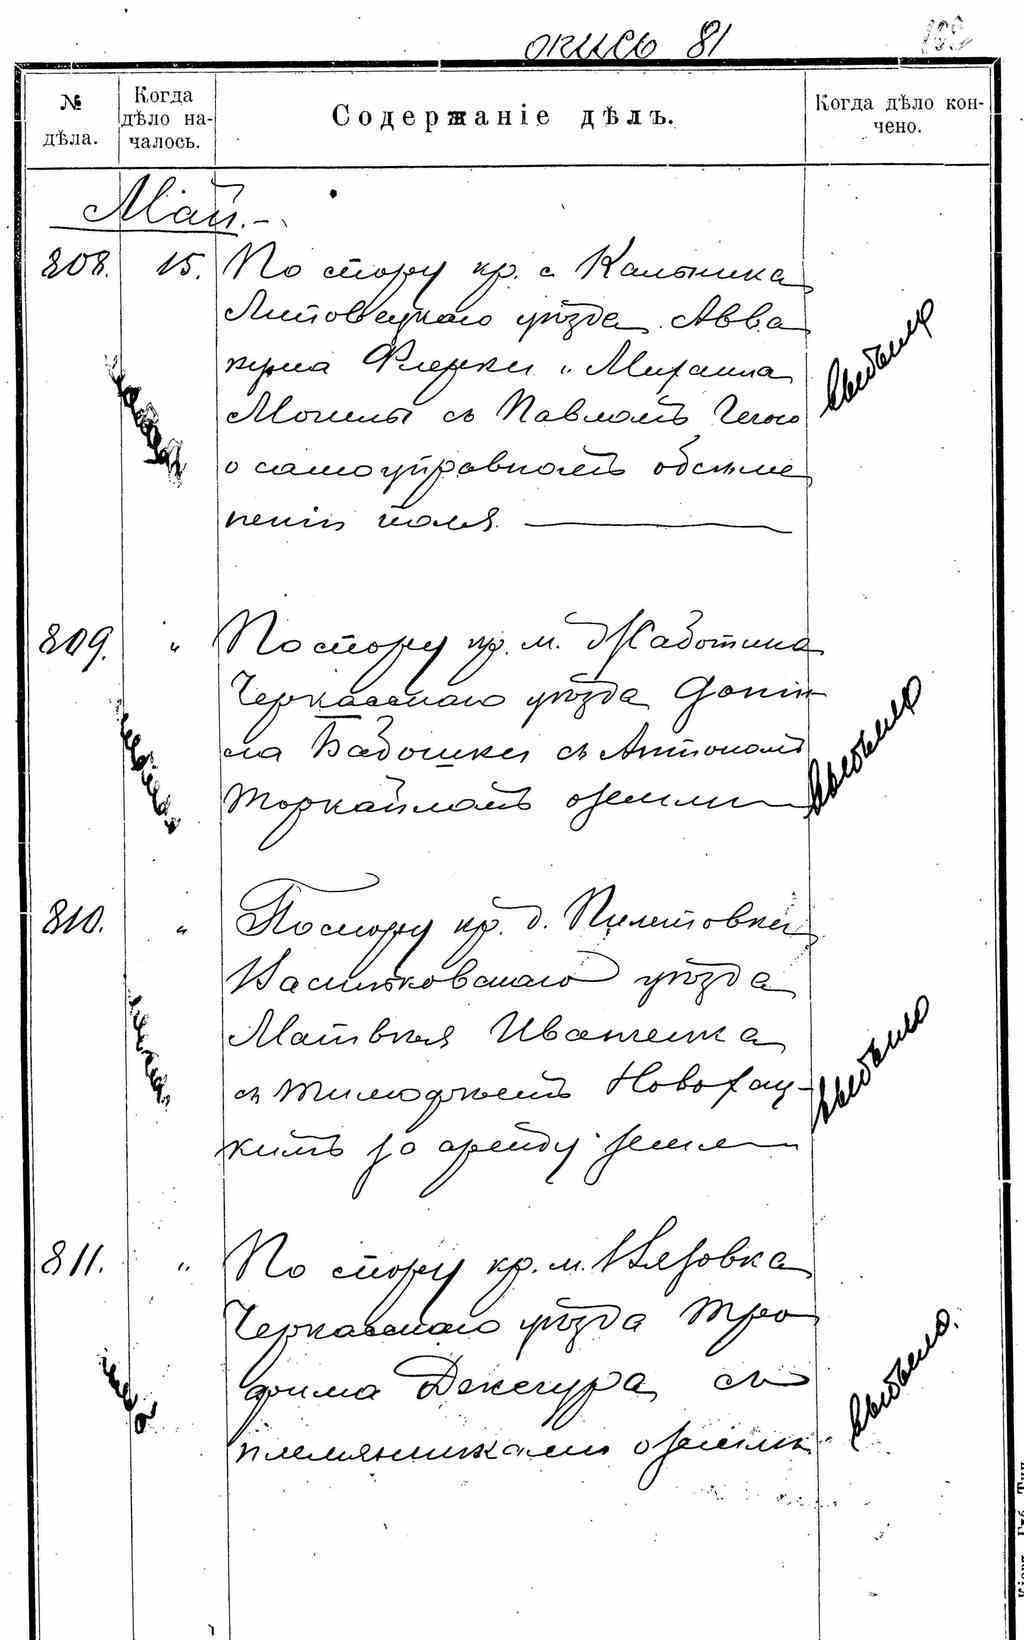 опись 81
№ дѣла.
Когда дѣло началось.
Содержаніе дѣлъ.
Когда дѣло кончено.
Май.
808. 15. По спору кр. с. Кальника
Липовецкаго уѣзда Авва
кума Флерки и Михаила
Могилы съ Павломъ
о самоуправномъ обсѣме
неніи поля.
выбыло
809. " По спору кр. м. Жаботина
Черкасскаго уѣзда Даніи
ла Бабошки съ Антономъ
о земли
выбыло
810. " По спору кр. д. Пилиповки
Васильковскаго уѣзда
Матвѣя Иванченка
съ Тимофѣемъ Новохац-
кимъ за аренду земли
выбыло
811. " По спору кр. м. Вязовка
Черкасскаго уѣзда Тро
фима Джегура съ
племянниками о земли
выбыло.